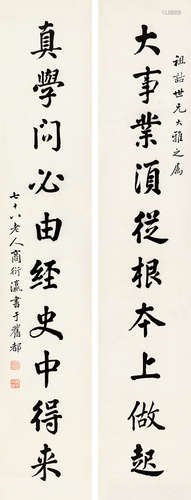 祖詒世兄大雅之属
大事業須從根本上做起
真學問必由經史中得来
七十八老人商衍瀛書于舊都